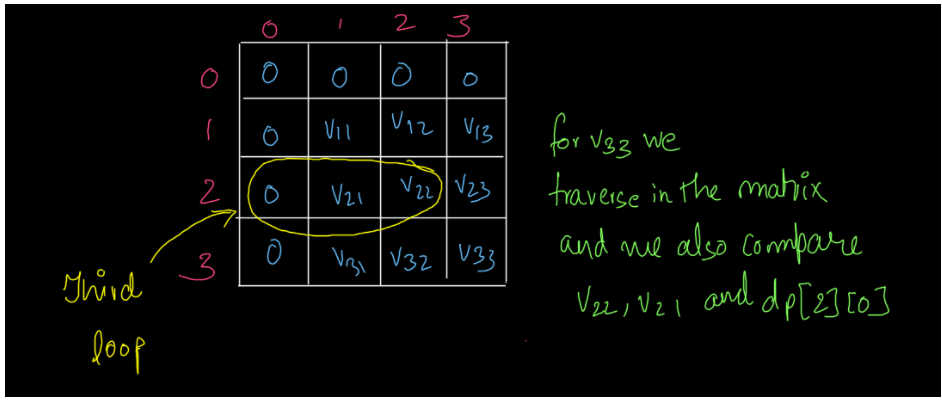 0 1 2 3
0 0 0 0 0
1 0 V11 V12 V13
2 0 V21 V22 V23
3 0 V31 V32 V33
Third
loop
for V33 we
traverse in the matrix
and we also compare
V22, V21 and dp[2][0]